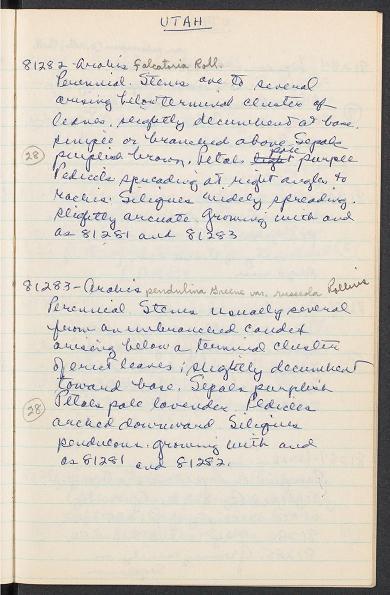 UTAH
81282 - Arabis falcatoria Roll.
Perennial. Stems one to several
arising below terminal cluster of
leaves, slightly decumbent at base.
simple or branched above. Sepals
28
purplish brown, Petals light pale purple
Pedicels spreading at right angles to
rachis. Siliques widely spreading.
slightly arcuate. Growing with and
as 81281 and 81283
81283 - Arabis pendulina Greene var. russeola Rollins
Perennial. Stems usually several
from an unbranched caudex
arising below a terminal cluster
of erect leaves; slightly decumbent
toward base. Sepals purplish
28
Petals pale lavender. Pedicels
arched downward Siliques
pendulous. growing with and
as 81281 and 81282.